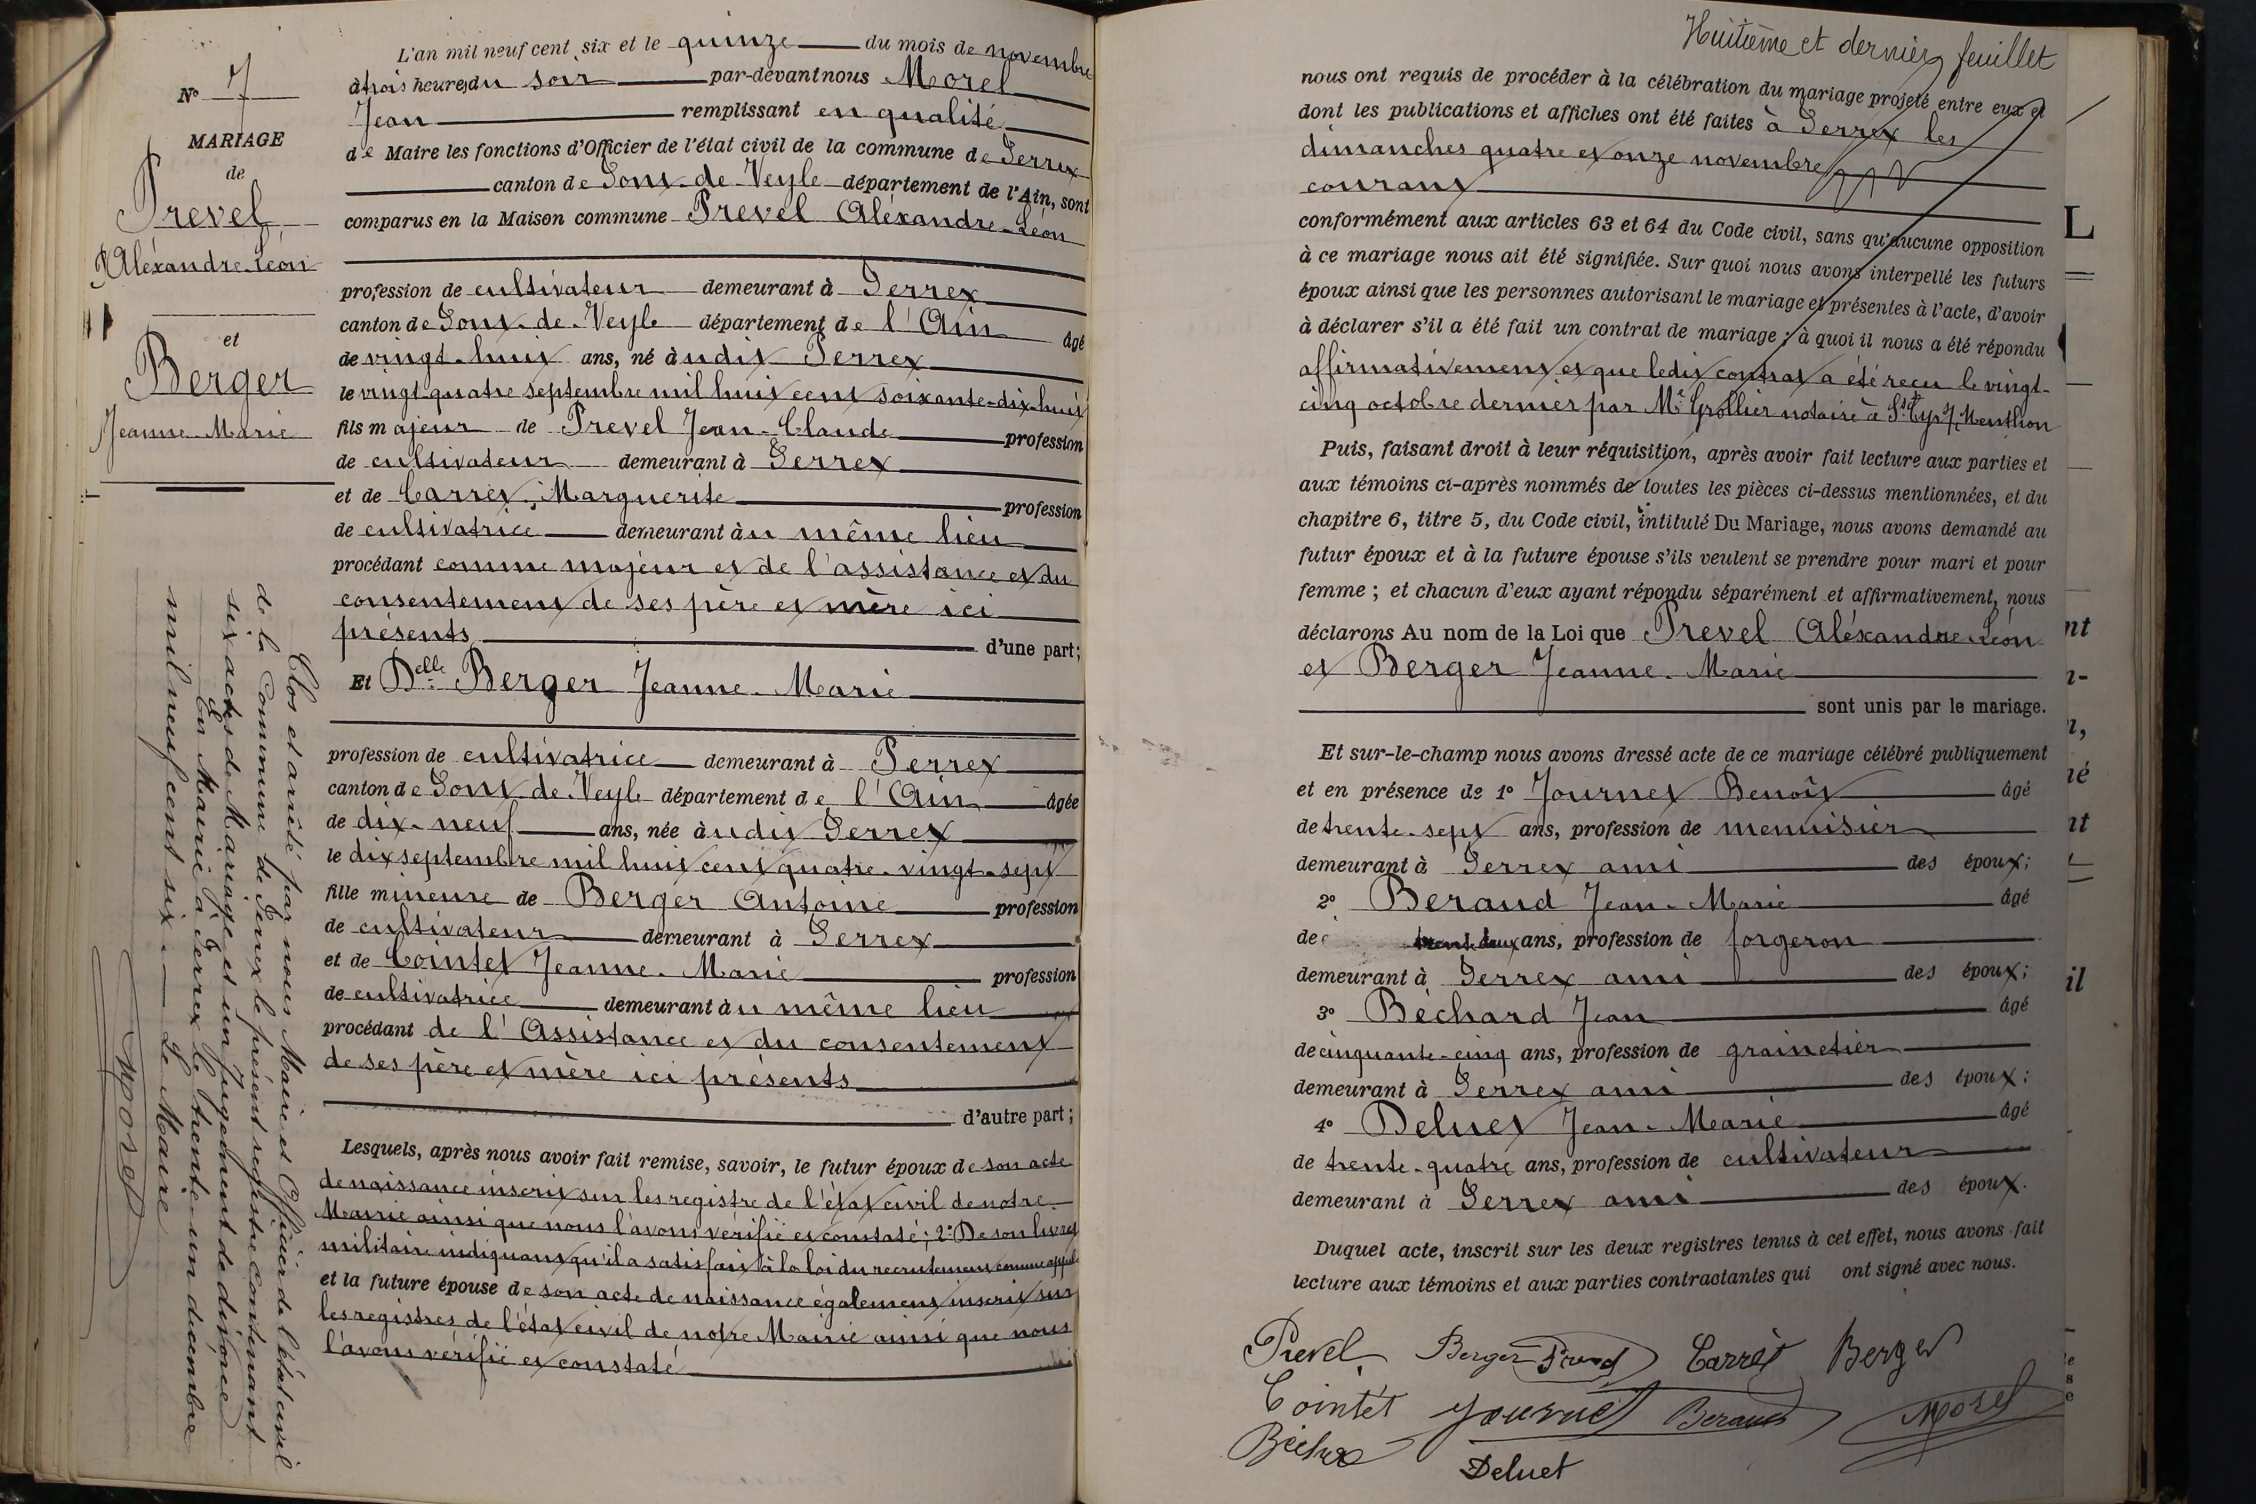 N° 7
MARIAGE
de
Prevel
Aléxandre-Léon
et
Berger
Jeanne-Marie
Clos et arrêté par nous Maire et Officier de l'état civil
de la Commune de Perrex le présent registre contenant
six actes de Mariage et un jugement de divorce
En Mairie à Perrex le trente-un décembre
mil neuf cent six. — Le Maire
Morel
L'an mil neuf cent six et le quinze du mois de novembre
à trois heures du soir par-devant nous Morel
Jean remplissant en qualité
de Maire les fonctions d'Officier de l'état civil de la commune de Perrex
canton de Pont-de-Veyle département de l'Ain, sont
comparus en la Maison commune Prevel Aléxandre-Léon
profession de cultivateur demeurant à Perrex
canton de Pont-de-Veyle département de l'Ain âgé
de vingt-huit ans, né à udit Perrex
le vingt-quatre septembre mil huit cent soixante-dix-huit
fils majeur de Prevel Jean-Claude profession
de cultivateur demeurant à Perrex
et de Carret Marguerite profession
de cultivatrice demeurant àu même lieu
procédant comme majeur et de l'assistance et du
consentement de ses père et mère ici
présents d'une part;
Et Delle Berger Jeanne-Marie
profession de cultivatrice demeurant à Perrex
canton de Pont-de-Veyle département de l'Ain âgée
de dix-neuf ans, née à udit Perrex
le dix septembre mil huit cent quatre-vingt-sept
fille mineure de Berger Antoine profession
de cultivateur demeurant à Perrex
et de Cointet Jeanne-Marie profession
de cultivatrice demeurant àu même lieu
procédant de l'Assistance et du consentement
de ses père et mère ici présents
d'autre part;
Lesquels, après nous avoir fait remise, savoir, le futur époux de son acte
de naissance inscrit sur les registre de l'état civil de notre
Mairie ainsi que nous l'avons vérifié et constaté; 2° De son livret
militaire indiquant qu'il a satisfait à la loi du recrutement comme appelé
et la future épouse de son acte de naissance également inscrit sur
les registres de l'état civil de notre Mairie ainsi que nous
l'avons vérifié et constaté
Huitième et dernier feuillet
nous ont requis de procéder à la célébration du mariage projeté entre eux et
dont les publications et affiches ont été faites à Perrex les
dimanches quatre et onze novembre
courant
conformément aux articles 63 et 64 du Code civil, sans qu'aucune opposition
à ce mariage nous ait été signifiée. Sur quoi nous avons interpellé les futurs
époux ainsi que les personnes autorisant le mariage et présentes à l'acte, d'avoir
à déclarer s'il a été fait un contrat de mariage; à quoi il nous a été répondu
affirmativement et que ledit contrat a été reçu le vingt-
cinq octobre dernier par Me Grollier notaire à St Cyr s/ Menthon
Puis, faisant droit à leur réquisition, après avoir fait lecture aux parties et
aux témoins ci-après nommés de toutes les pièces ci-dessus mentionnées, et du
chapitre 6, titre 5, du Code civil, intitulé Du Mariage, nous avons demandé au
futur époux et à la future épouse s'ils veulent se prendre pour mari et pour
femme; et chacun d'eux ayant répondu séparément et affirmativement, nous
déclarons Au nom de la Loi que Prevel Aléxandre-Léon
et Berger Jeanne-Marie
sont unis par le mariage.
Et sur-le-champ nous avons dressé acte de ce mariage célébré publiquement
et en présence de 1° Journet Benoît âgé
de trente-sept ans, profession de menuisier
demeurant à Perrex ami des époux;
2° Beraud Jean-Marie âgé
de trente deux ans, profession de forgeron
demeurant à Perrex ami des époux;
3° Béchard Jean âgé
de cinquante-cinq ans, profession de grainetier
demeurant à Perrex ami des époux;
4° Deluet Jean-Marie âgé
de trente-quatre ans, profession de cultivateur
demeurant à Perrex ami des époux.
Duquel acte, inscrit sur les deux registres tenus à cet effet, nous avons fait
lecture aux témoins et aux parties contractantes qui ont signé avec nous.
Prevel Berger Prevel Carret Berger
Cointet Journet Beraud Morel
Deluet